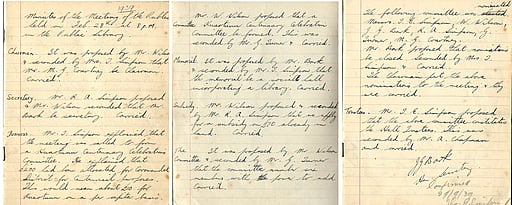 1939
Minutes of the Meeting of the Public
held on Feb 28th at 8 P.M.
in the Public Library
Chairman. It was proposed by Mr. Wilson
& seconded by Mr. T. Simpson that
Mr. M. G. Courtney be Chairman
Carried.
Secretary Mr. R. A. Simpson proposed
& Mr. Wilson seconded that Mr.
Book be secretary. Carried
Mr. T. Simpson explained that
the meeting was called to form
a Centennial Celebration
Committee. He explained that
£200 had been allocated for
District for Centennial purposes.
This would mean about £20 for
on a per capita basis.
Mr. W. Wilson proposed that a
Committee Centennial Celebration
Committee be formed. This was
seconded by Mr. G. Turner & Carried.
Memorial It was proposed by Mr. Book
& seconded by Mr. T. Simpson that
the memorial be a social hall
incorporating a library. Carried.
Subsidy Mr. Wilson proposed & seconded
by Mr. R. A. Simpson that we apply
for a subsidy on £90 already in
hand. Carried
The It was proposed by Mr. Wilson
Committee & seconded by Mr. G. Turner
that the committee number six
members with the power to add
Carried.
nominated
The following committee was elected
Messrs T. G. Simpson, W. Wilson,
J. G. Book, R. A. Simpson, G.
Turner, M. G. Courtney
Mr. Book proposed that nominations
be closed. Seconded by Mr. T.
Simpson & Carried
The Chairman put the above
nominations to the meeting & they
were carried.
Trustees Mr. T. Simpson proposed
that the above committee constitutes
the Hall trustees. This was
seconded by Mr. A. Chapman
and carried.
J G Book
Hon Secretary
Confirmed